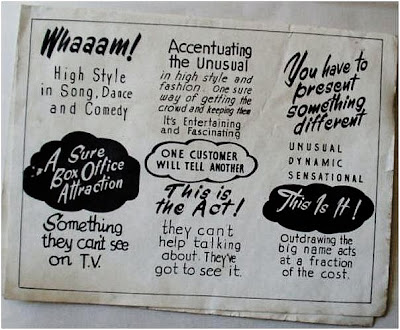 Whaaam!
High Style
in Song, Dance
and Comedy
A Sure
Box Office
Attraction
Something
they can't see
on T.V.
Accentuating
the Unusual
in high style and
fashion. One sure
way of getting the
crowd and keeping them
It's Entertaining
and Fascinating
ONE CUSTOMER
WILL TELL ANOTHER
This is
the Act!
they can't
help talking
about. They've
got to see it.
You have to
present
something
different
UNUSUAL
DYNAMIC
SENSATIONAL
This Is It!
Outdrawing the
big name acts
at a fraction
of the cost.